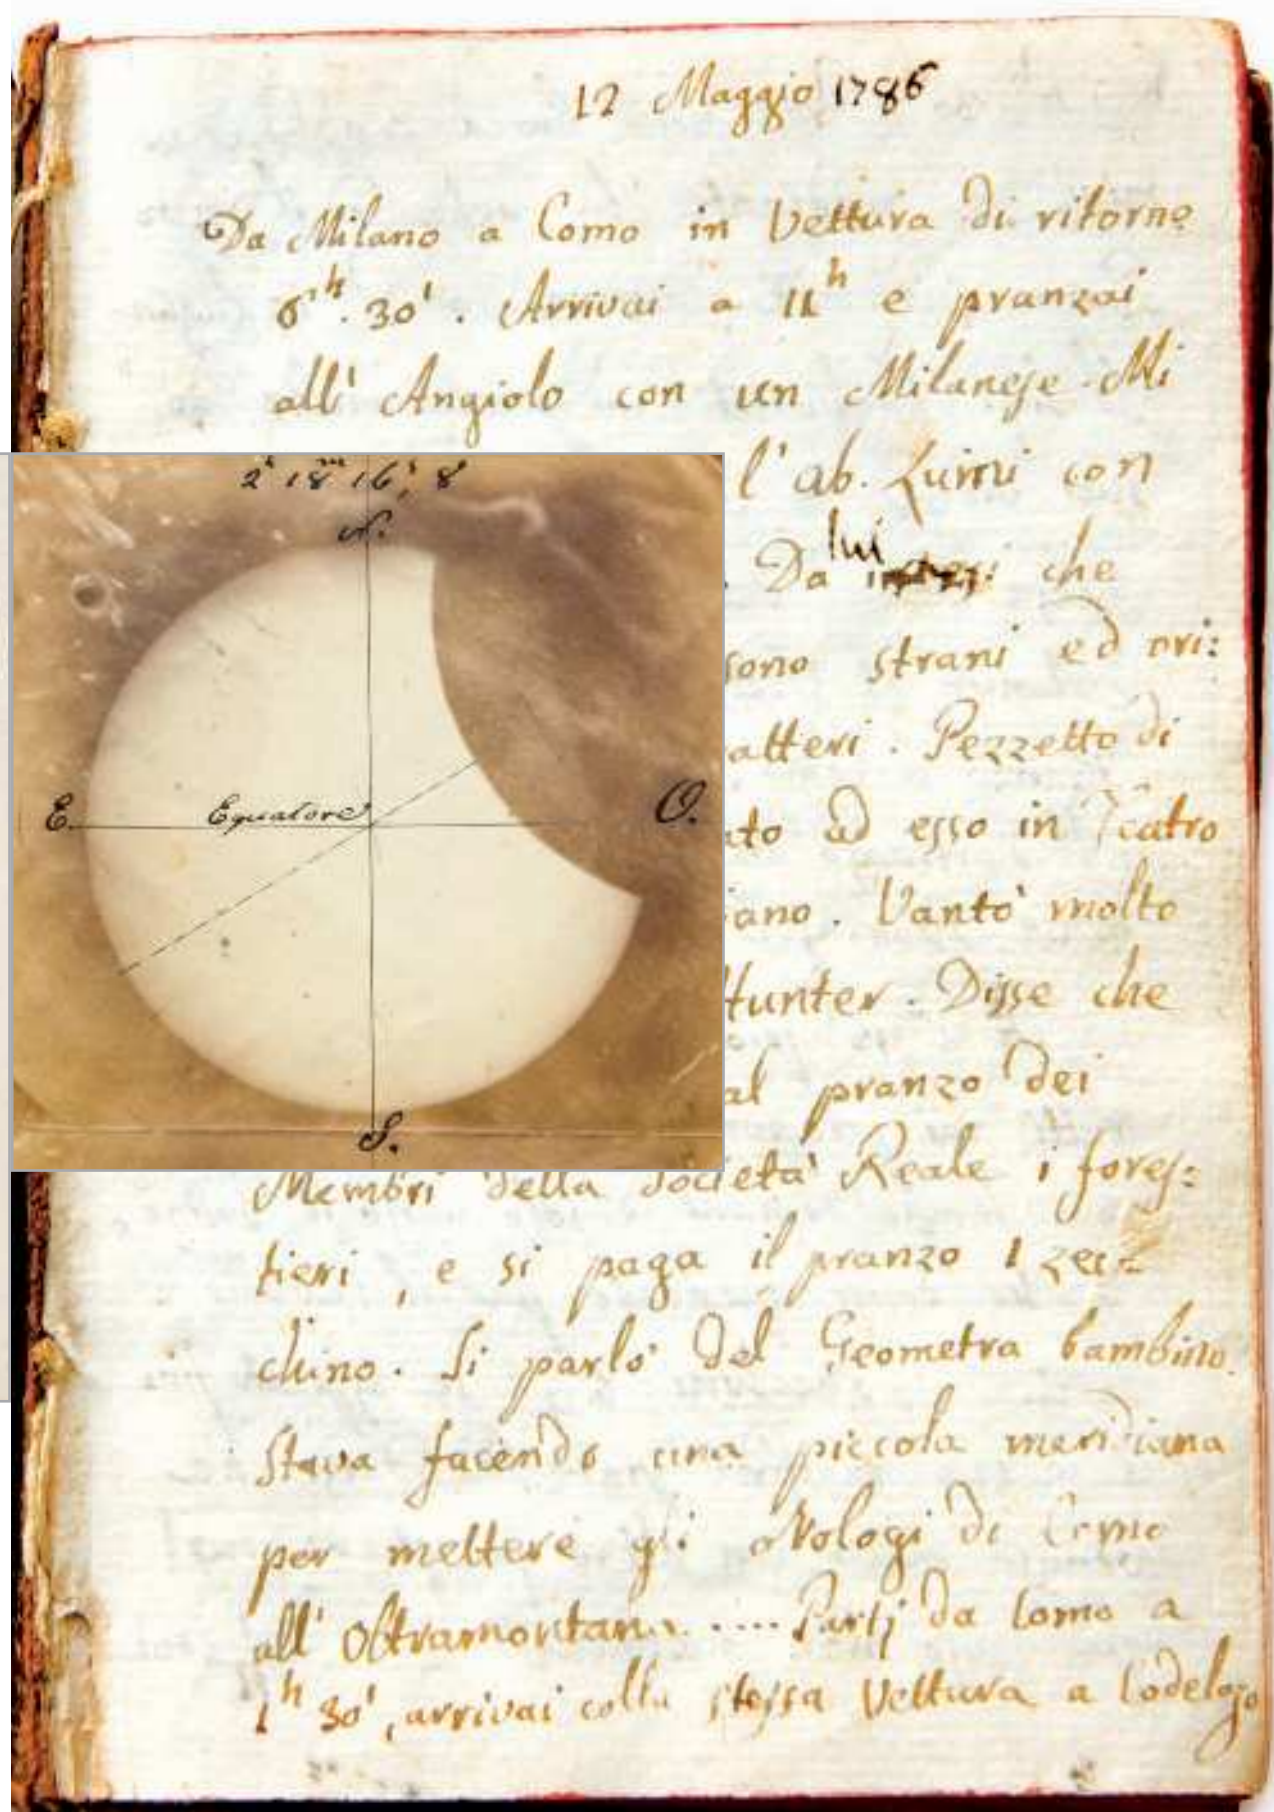 12 Maggio 1786
Da Milano a Como in Vettura di ritorno
6h. 30'. Arrivai a 11h e pranzai
all' Angiolo con un Milanese. Mi
l'ab. con
Da lui che
sono strani ed ori:
atteri. Pezzetto di
ato ad esso in Teatro
iano. Vantò molto
Hunter. Disse che
al pranzo dei
Membri della Società Reale i fores:
tieri, e si paga il pranzo 1 zec:
chino. Si parlò del Geometra bambino.
Stava facendo una piccola meridiana
per mettere gli orologi di Como
all' Oltramontana ..... Partj da Como a
1h 30', arrivai colla stessa Vettura a
2h 18m 16s, 8
N.
E.
Equatore
O.
S.